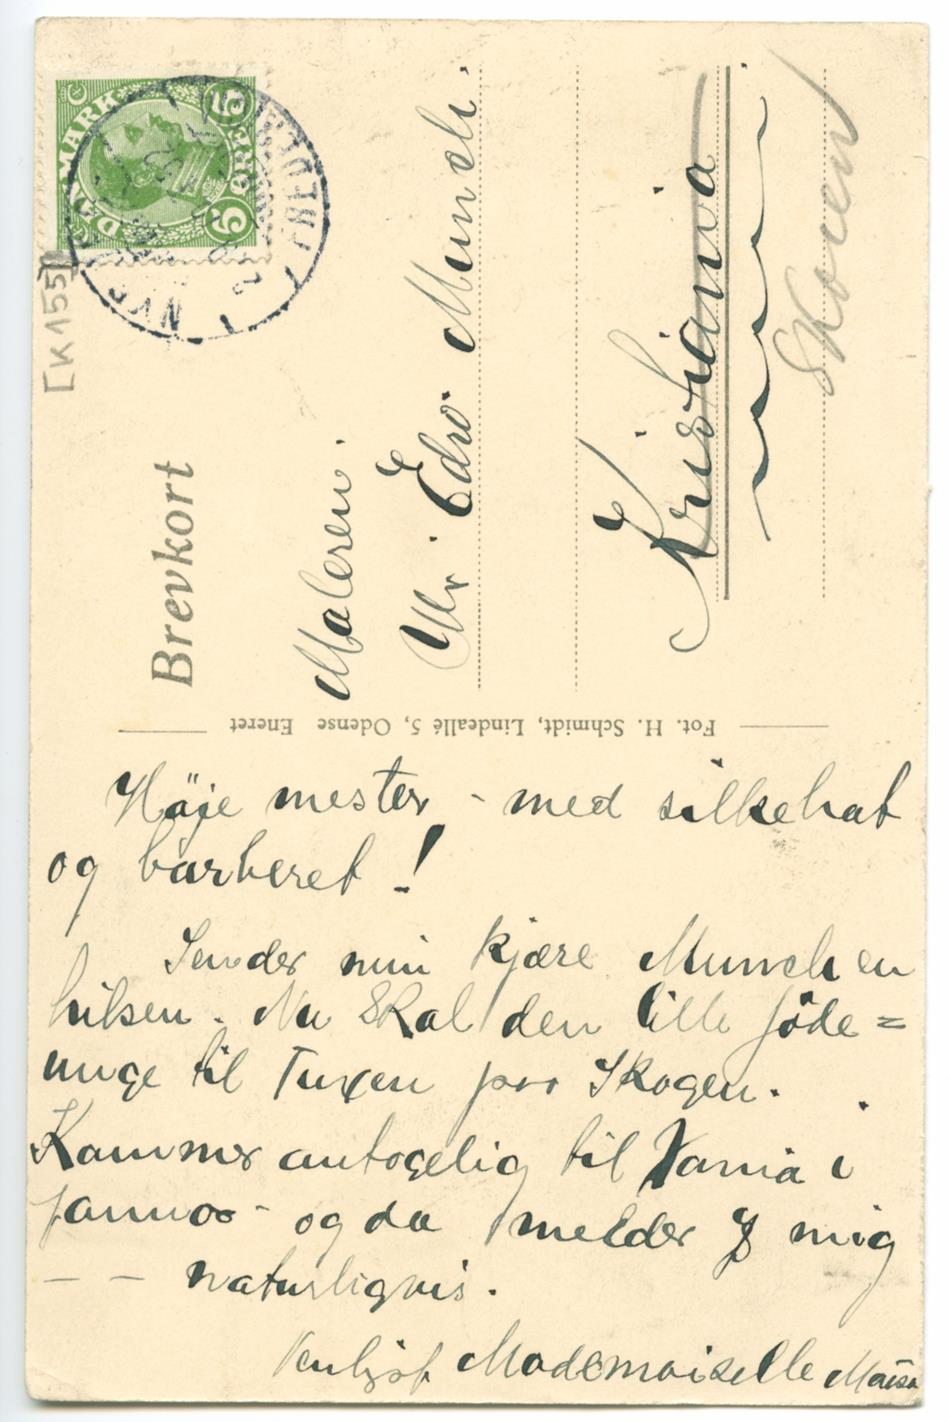 DANMARK 5 ØRE 5
NYBORG
[K 155]
Brevkort
Maleren.
Hr. Edv Munch.
Kristiania
Skøien
Fot. H. Schmidt, Lindeallé 5, Odense Eneret
Høje mester - med silkehat
og barberet!
Sender min kjære Munch en
hilsen. Nu skal den lille jöde=
unge til Tuxen paa Skagen.
Kommer antagelig til Xania i
januar - og da melder jeg mig
- - naturligvis.
Venligst Mademoiselle Maisa